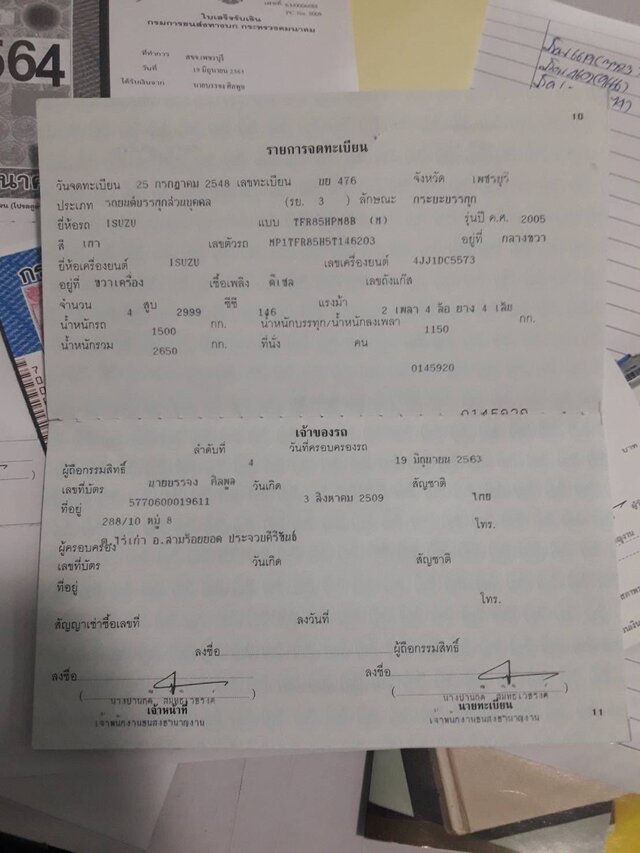 564
เลขที่
ใบเสร็จรับเงิน
กรมการขนส่งทางบก กระทรวงคมนาคม
ที่ทำการ สขจ.เพชรบุรี
วันที่
ได้รับเงินจาก นายบรรจง ศิลพูล
10
รายการจดทะเบียน
วันจดทะเบียน 25 กรกฎาคม 2548 เลขทะเบียน บย 476 จังหวัด เพชรบุรี
ประเภท รถยนต์บรรทุกส่วนบุคคล (รย. 3 ) ลักษณะ กระบะบรรทุก
ยี่ห้อรถ ISUZU แบบ TFR85HPM8B (M) รุ่นปี ค.ศ. 2005
สี เทา เลขตัวรถ MP1TFR85H5T146203 อยู่ที่ กลางขวา
ยี่ห้อเครื่องยนต์ ISUZU เลขเครื่องยนต์ 4JJ1DC5573
อยู่ที่ ขวาเครื่อง เชื้อเพลิง ดีเซล เลขถังแก๊ส
จำนวน 4 สูบ 2999 ซีซี 146 แรงม้า 2 เพลา 4 ล้อ ยาง 4 เส้น
น้ำหนักรถ 1500 กก. น้ำหนักบรรทุก/น้ำหนักลงเพลา 1150 กก.
น้ำหนักรวม 2650 กก. ที่นั่ง คน
0145920
0145920
เจ้าของรถ
ลำดับที่ 4 วันที่ครอบครองรถ 19 มิถุนายน 2563
ผู้ถือกรรมสิทธิ์ นายบรรจง ศิลพูล
เลขที่บัตร 5770600019611 วันเกิด 3 สิงหาคม 2509 สัญชาติ ไทย
ที่อยู่ 288/10 หมู่ 8 โทร.
ต.ไร่เก่า อ.สามร้อยยอด ประจวบคีรีขันธ์
ผู้ครอบครอง
เลขที่บัตร วันเกิด สัญชาติ
ที่อยู่
โทร.
สัญญาเช่าซื้อเลขที่ ลงวันที่
ลงชื่อ ผู้ถือกรรมสิทธิ์
ลงชื่อ ลงชื่อ
เจ้าหน้าที่ นายทะเบียน
เจ้าพนักงานขนส่งชำนาญงาน เจ้าพนักงานขนส่งชำนาญงาน
11